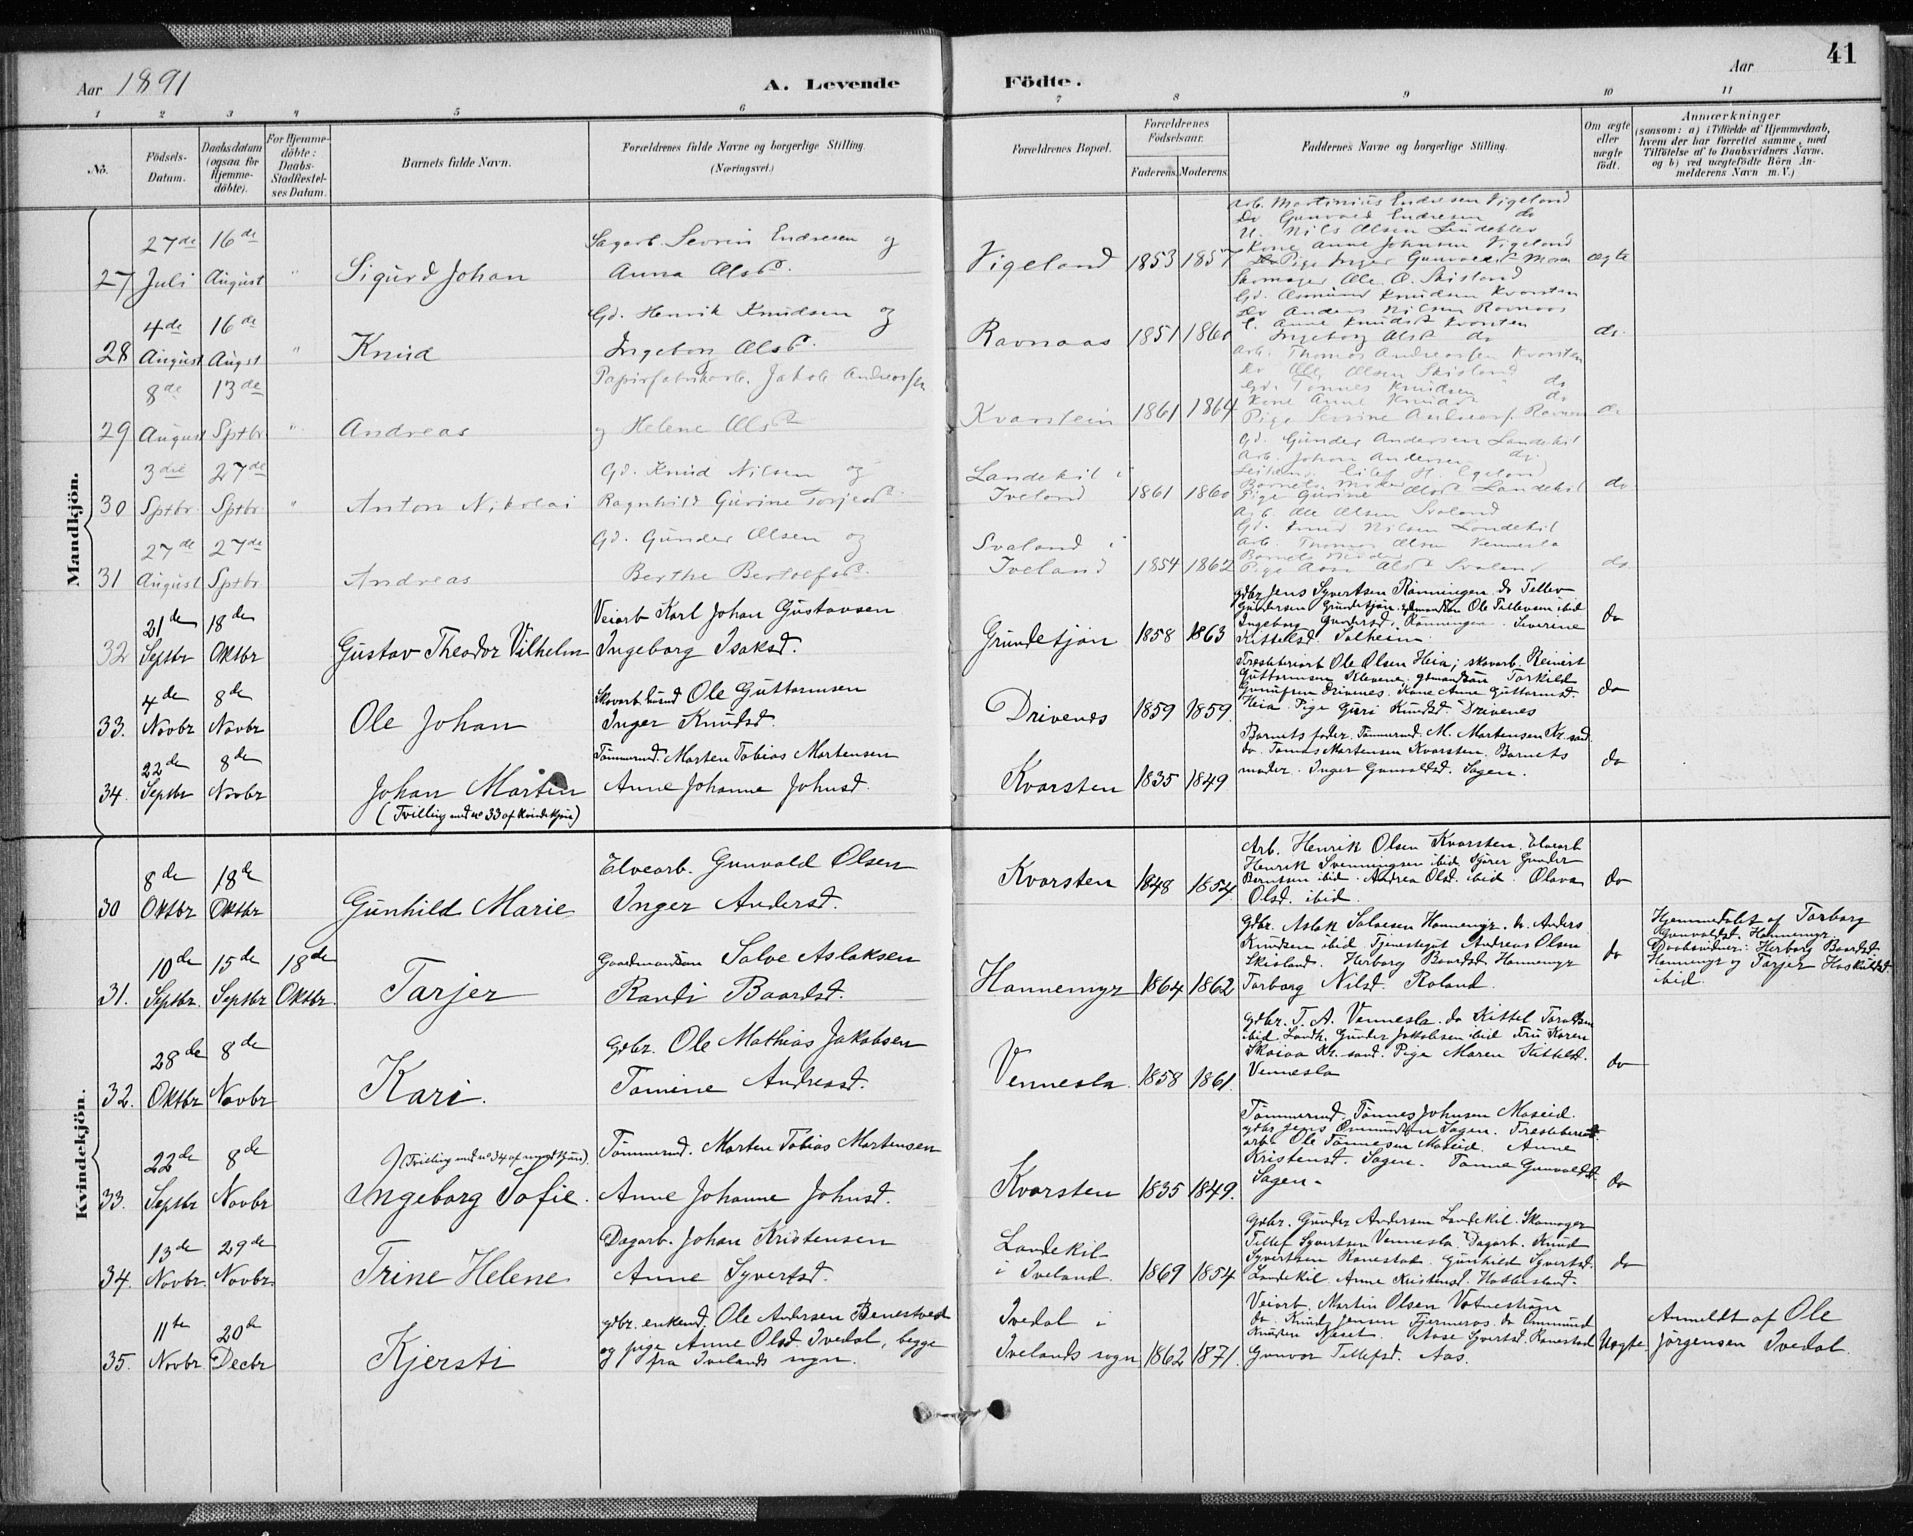 41
Aar 1891
A. Levende Födte.
Aar
1 2 3 4 5 6 7 8 9 10 11
Nò.
Födsels-Datum.
Daabsdatum (ogsaa for Hjemme-döbte).
For Hjemme-döbte: Daabs-Stadfæstel-ses Datum.
Barnets fulde Navn.
Forældrenes fulde Navne og borgerlige Stilling. (Næringsvei.)
Forældrenes Bopæl.
Forældrenes Födselsaar.
Faderens. Moderens.
Faddernes Navne og borgerlige Stilling.
Om ægte eller uægte födt.
Anmærkninger
(saasom: a) i Tilfælde af Hjemmedaab, hvem der har forrettet samme, med Tilföielse af to Daabsvidners Navne, og b) ved uægtefödte Börn An-melderens Navn m. V.)
Mandkjön.
27 27de Juli 16de August " Sigurd Johan
Sagarb. Sevrin Endresen og
Anna Olsd.
Vigeland 1853 1857
Arb. Martinius Endresen Vigeland
Do Gunvald Endresen do
Nils Olsen
Kone Anne Johnsen Vigeland
Pige Inger Gunvaldsd.
ægte
28 4de August 16de Augst " Knud
Gd. Henrik Knudsen og
Ingeborg Olsd.
Ravnaas 1851 1860
Skomager Ole O. Skisland
Gd. Aamund Knudsen Kvarsten
Do Anders Nilsen Ravnaas
Anne Knudsd. Kvarsten
Ingeborg Olsd. do
do.
29 8de August 13de Sptbr " Andreas
Papirfabrikarb. Jakob Andreassen
og Helene Olsd.
Kvarstein 1861 1864
Arb. Thomas Andreassen Kvarsten
do Ole Olsen Skisland
Gd. Tönnes Knudsen do
Kone Anne Knudsd. do
Pige Severine Andreasd.
do
30 3die Sptbr 27de Sptbr " Anton Nikolai
Gd. Knud Nilsen og
Ragnhild Gurine Torjesd.
Landekil i
Iveland 1861 1860
Gd. Gunder Andersen Landekil
Arb. Johan Andersen do.
Eilef H. Egeland
Barnets Moder
Pige Gurine Olsd. Landekil
do
31 27de August 27de Sptbr Andreas
Gd. Gunder Olsen og
Berthe Bertolfsd.
Svaland i
Iveland 1854 1862
Arb. Ole Olsen Svaland
Gd. Knud Nilsen Landekil
Arb. Thomas Olsen Vennesla
Barnets Moder
Pige Aase Olsd. Svaland
do
32 21de Septbr 18de Oktbr Gustav Theodor Vilhelm
Veiarb Karl Johan Gustavsen
Ingeborg Isaksd.
Grundetjön 1858 1863
gdbr Jens Syvertsen Rönningen do Tellev
Gundersen Grundetjön. gdmandsön Ole Tellevsen ibid
Ingeborg Gundersd. Rönningen. Severine
Kittelsd. Solheim.
do
33. 4de Novbr 8de Novbr Ole Johan
Skovarb. husmd Ole Guttormsen
Inger Knudsd.
Drivenes 1859 1859
Træsliberiarb Ole Olsen Heia; skovarb. Reinert
Guttormsen Klevene. gdmandsön Torkild
Gunufsen Drivenes. Kone Anne Guttormsd.
Heia. Pige Guri Knudsd. Drivenes
do
34. 22de Septbr 8de Novbr Johan Martin
(Tvilling med no 33 af kvindekjön)
Tömmermd. Morten Tobias Mortensen
Anne Johanne Johnsd.
Kvarsten 1835 1849
Barnets fader. Tömmermd. M. Mortensen Kr.sand
do. Tomas Mortensen Kvarsten. Barnets
moder. Inger Gunvaldsd. Sagen.
do
Kvindekjön.
30 8de Oktbr 18de Oktbr Gunhild Marie
Elvearb. Gunvald Olsen
Inger Andersd.
Kvarsten 1848 1854
Arb. Henrik Olsen Kvarsten. Elvearb
Henrik Svenningsen ibid. Gunder
Berntsen ibid. Andrea Olsd. ibid. Olava
Olsd. ibid.
do
31. 10de Septbr. 15de Septbr 18de Oktbr. Tarjer
Gaardmandsön Salve Aslaksen
Randi Baardsd.
Hannemyr 1864 1862
Gdbr. Aslak Salvesen Hannemyr. do. Anders
Knudsen ibid. Tjenestegut Andreas Olsen
Skisland. Herborg Baardsd. Hannemyr
Torborg Nilsd. Roland.
do
Hjemmedöbt af Torborg
Gunvaldsd. Hannemyr.
Daabsvidner: Herborg Baardsd.
Hannemyr og Tarjer Haskildsd.
ibid.
32. 28de Oktbr 8de Novbr Kari.
Gdbr. Ole Mathias Jakobsen
Tomine Andreasd.
Vennesla 1858 1861.
gdbr. T. A. Vennesla. do Kittel Taraldsen
ibid. Landh. Gunder Jakobsen ibid Fru Karen
Skaiaa Kr.sand. Pige Maren Kittelsd.
Vennesla
do
33. 22de Septbr 8de Novbr
(Tvilling med no 34 af mandkjön).
Ingeborg Sofie.
Tömmermd. Morten Tobias Mortensen
Anne Johanne Johnsd.
Kvarsten 1835 1849.
Tömmermd. Tönnes Johnsen Moseid.
gdbr Jens Omundsen Sagen. Træsliberi-
arb. Ole Tönnesen Moseid. Anne
Kristensd. Sagen. Tonne Gunvaldsd.
Sagen.
do
34. 13de Novbr. 29de Novbr. Trine Helene
Dagarb. Johan Kristensen
Anne Syvertsd.
Landekil
i Iveland. 1869 1854
Gdbr. Gunder Andersen Landekil. Skomager
Tellef Syvertsen Vennesla. Dagarb. Knud
Syvertsen Ranestad. Gunhild Syvertsd.
Landekil. Anne Kristensd.
do
35. 11te Novbr 20de Decbr Kjersti
gdbr. enkemd. Ole Andersen Benestvedt
og pige Anne Olsd. Ivedal, begge
fra Ivelands sogn.
Ivedal i
Ivelands sogn 1862 1871.
Veiarb. Martin Olsen Vatneström
do. Knud Jensen do Ommund
Knudsen Neset. Aase Syvertsd. Ranestad
Gunvor Tellefsd. Aas.
Uægte.
Anmeldt af Ole
Jörgensen Ivedal.